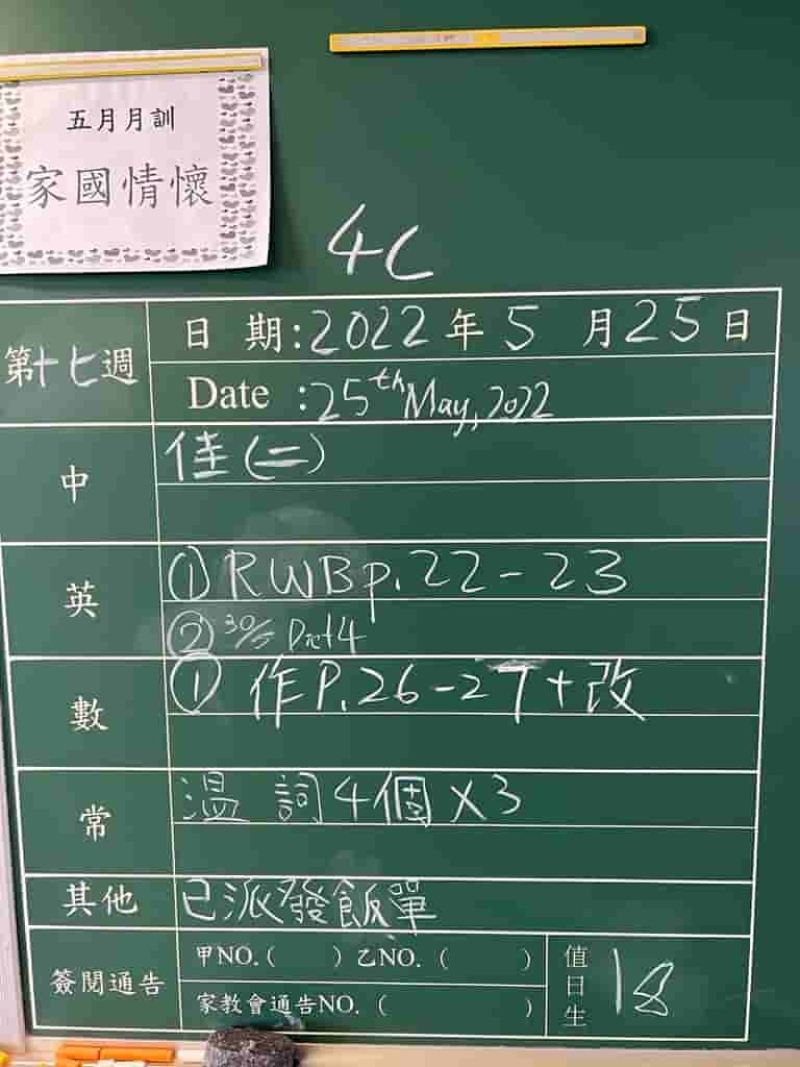 五月月訓
家國情懷
4C
第十七週
日 期:2022年5月25日
Date :25th May, 2022
中
佳(二)
英
①RWB p.22-23
②30/5 Dict4
數
① 作P.26-27+改
常
溫 詞4個×3
其他
已派發飯單
簽閱通告
甲NO.( ) 乙NO. ( )
家教會通告NO. ( )
值日生
18